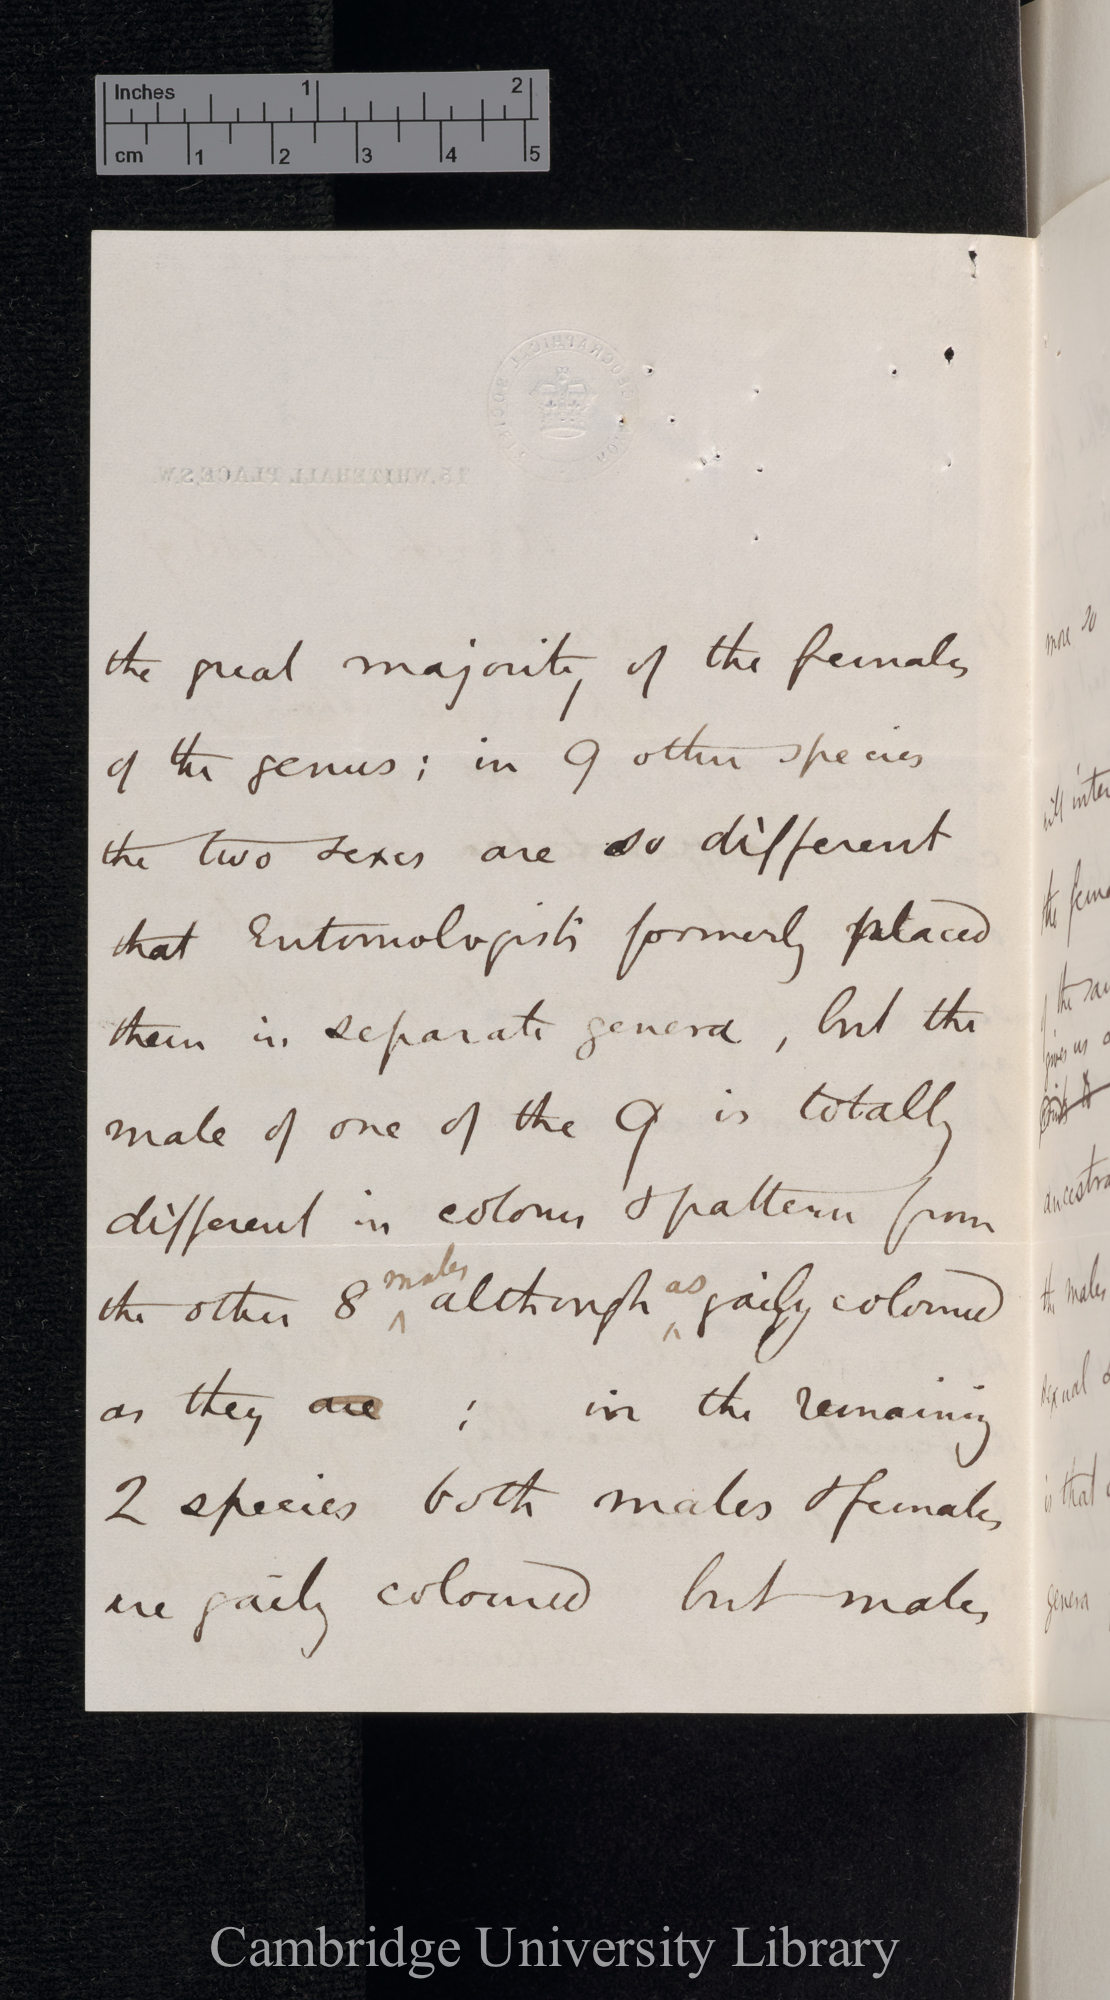 Inches 1 2
cm 1 2 3 4 5
ROYAL GEOGRAPHICAL SOCIETY LONDON
15, WHITEHALL PLACE, S.W.
the great majority of the females
of the genus; in 9 other species
the two sexes are so different
that Entomologists formerly placed
them in separate genera, but the
male of one of the 9 is totally
different in colour & pattern from
the other 8 males although as gaily coloured
as they are ; in the remaining
2 species both males & females
are gaily coloured but males
more so
will inter
the fema
the sa
gives us
ancestra
the males
sexual
is that
genera
Cambridge University Library